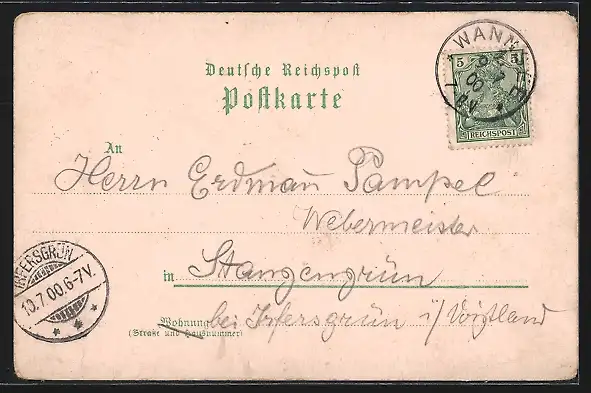 WANNSEE
5 5
REICHSPOST
Deutsche Reichspost
Postkarte
An
Herrn Erdman Pampel
Webermeister
in Stangengrün
Wohnung bei Irfersgrün i/Voigtland
(Straße und Hausnummer)
IRFERSGRÜN
10.7.00.6-7V.